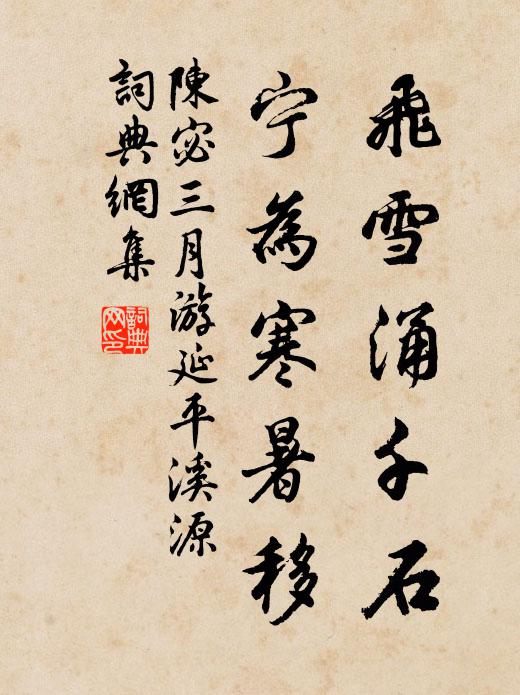 飛雪涌千石
宁為寒暑移
陳宓三月游延平溪源
詞典網集
詞典
网印